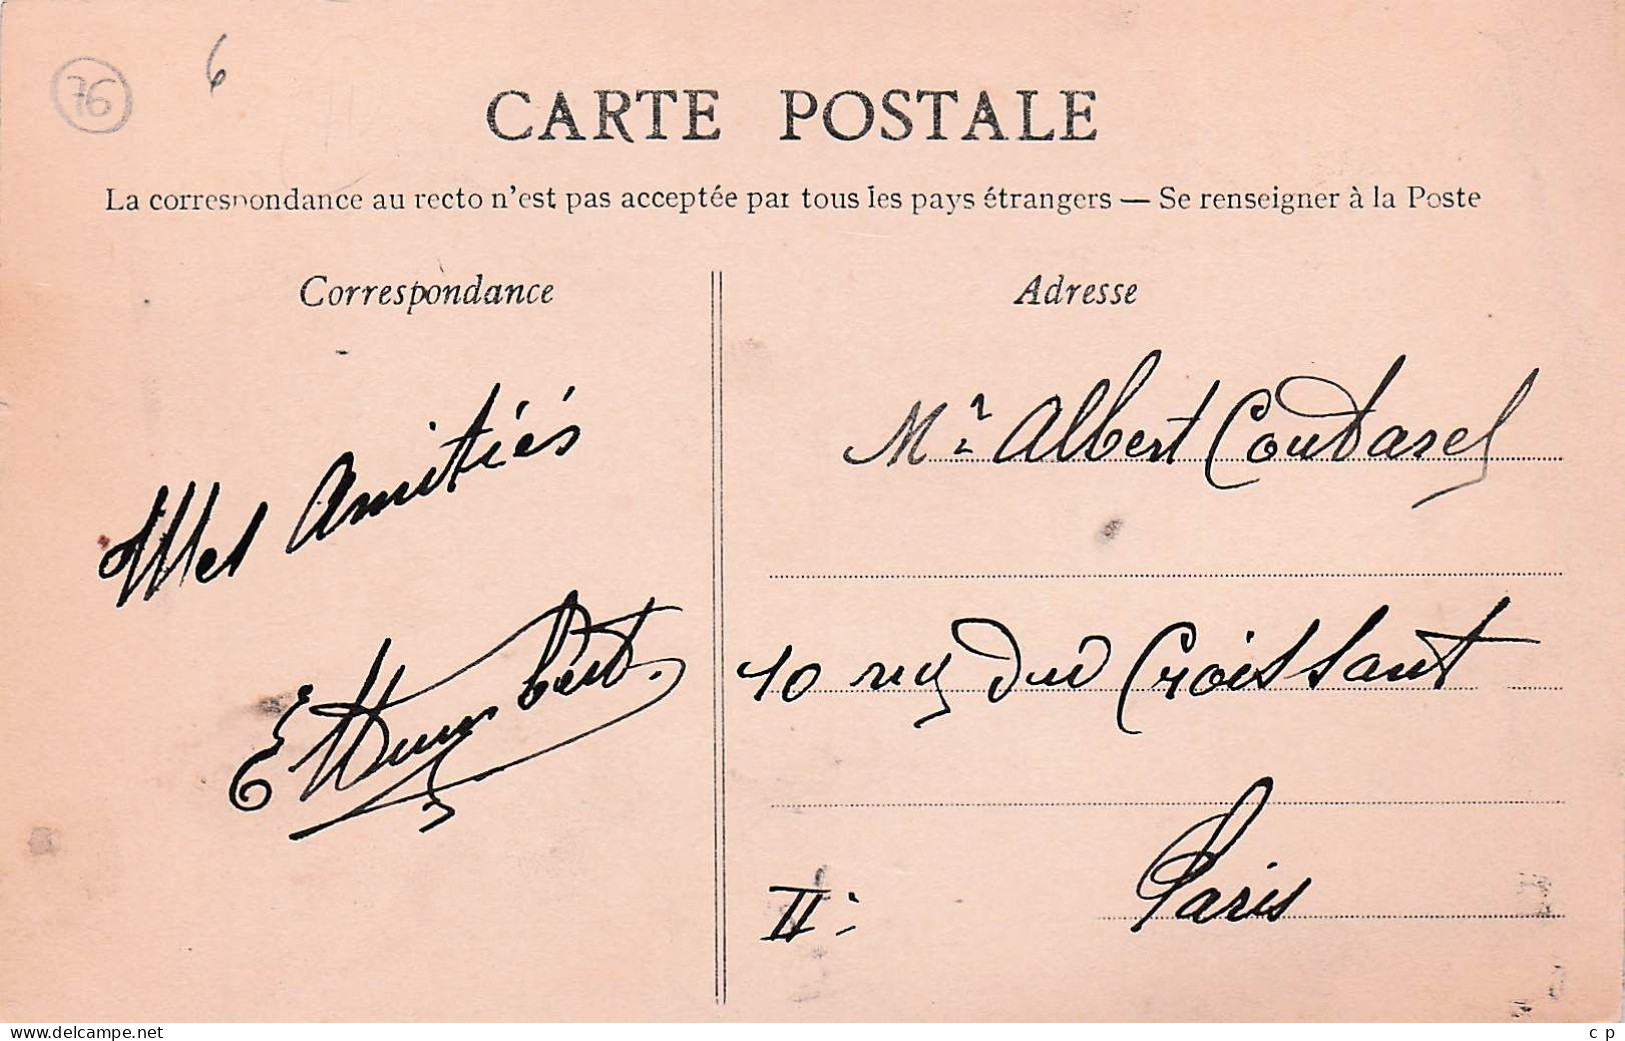 76
6
CARTE POSTALE
La correspondance au recto n'est pas acceptée par tous les pays étrangers — Se renseigner à la Poste
Correspondance
Adresse
Mes Amitiés
Mr Albert Coudasel
10 rue du Croissant
Paris
IIe
delcampe.net
c p